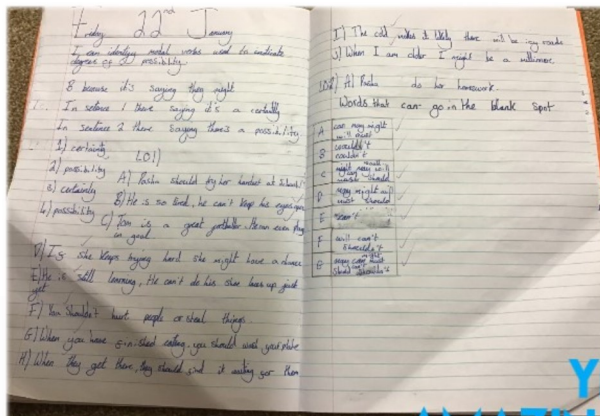 Friday 22nd January
I can identify modal verbs used to indicate
degrees of possibility
B because it's saying they might
In sentence 1 there saying it's a certainty
In sentence 2 there saying there's a possibility
1) certainty
2) possibility
3) certainty
4) possibility
LO1)
A) Pasha should try her hardest at School
B) He is so tired, he can't keep his eyes open
C) Tom is a great footballer. He can even play
in goal
D) If she keeps trying hard she might have a chance
E) He is still learning, He can't do his shoe laces up just
yet
F) You shouldn't hurt people or steal things
G) When you have finished eating, you should wash your plate
H) When they get there, they should find it waiting for them
I) The cold makes it likely there will be icy roads
J) When I am older I might be a millionaire
LO2) A) Pasha do her homework
Words that can go in the blank spot
A can may might
will must
B wouldn't
couldn't
C might may will
must should
D may might will
must should
E can't
F will can't
shouldn't
G may can must
shouldn't
Y